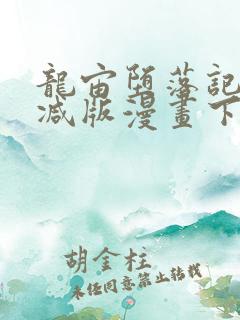 龍宙堕落記
减版漫畫下
胡金柱
未经同意禁止转载